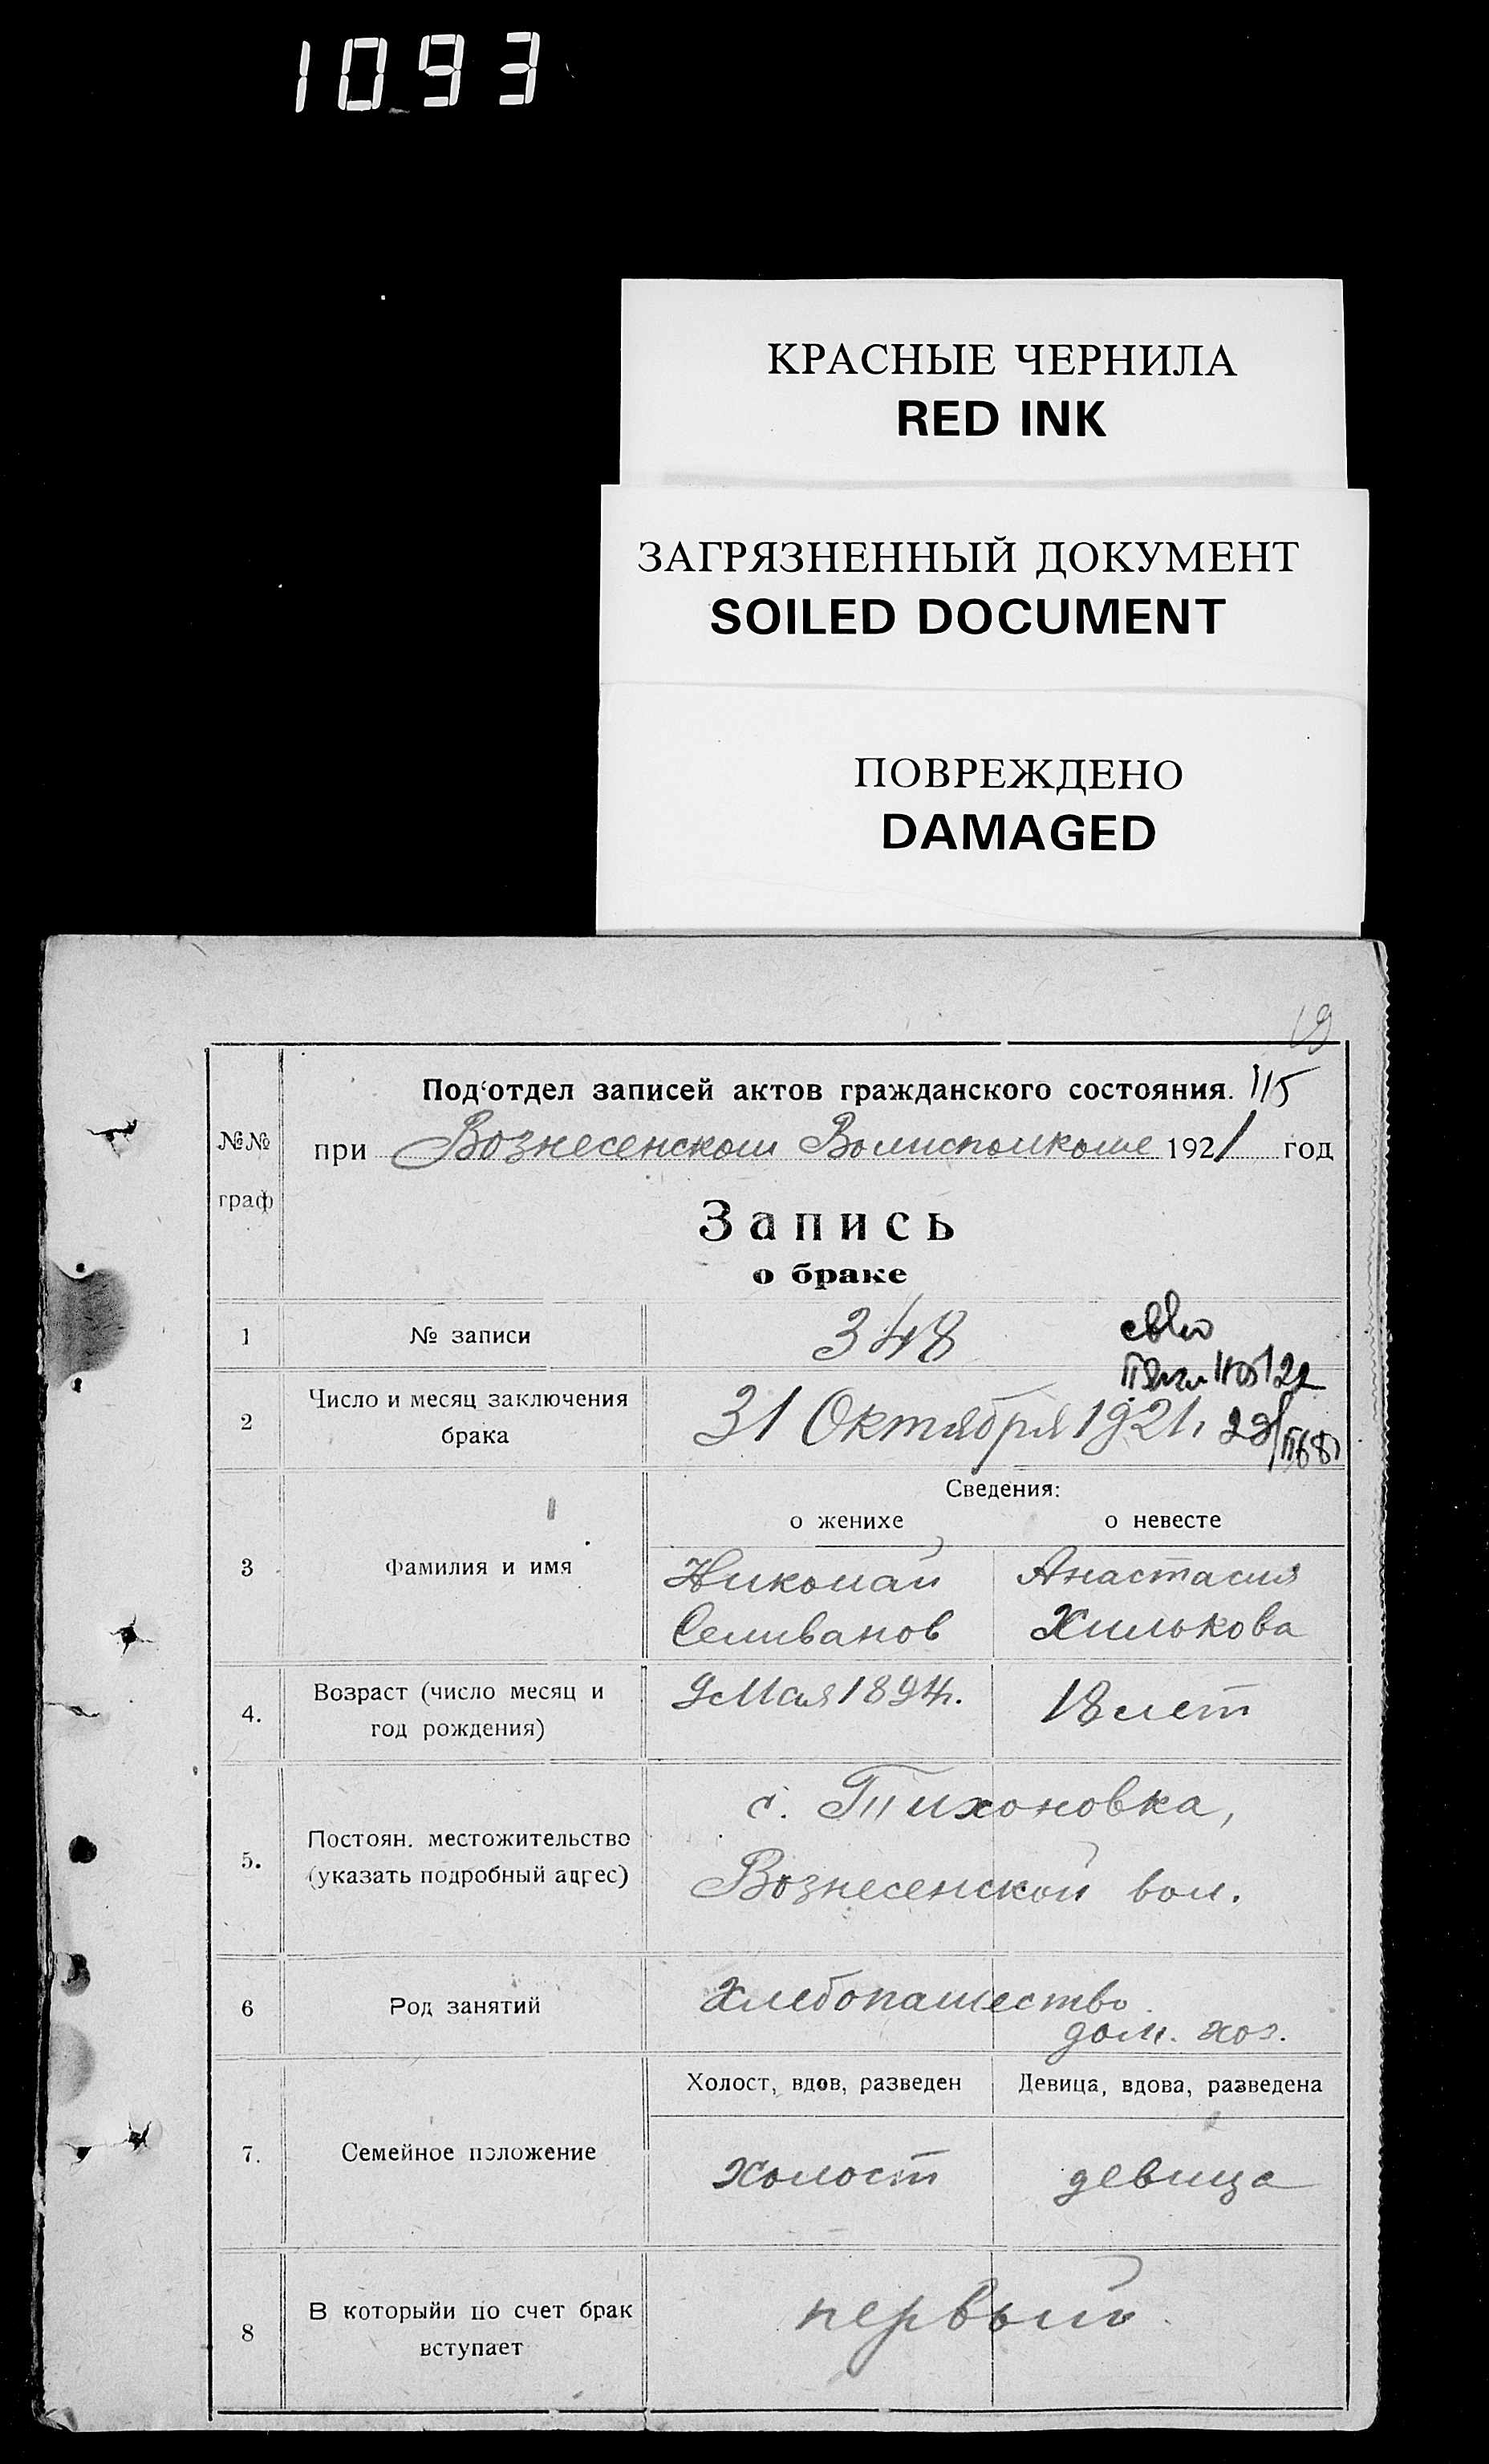 1093
КРАСНЫЕ ЧЕРНИЛА
RED INK
ЗАГРЯЗНЕННЫЙ ДОКУМЕНТ
SOILED DOCUMENT
ПОВРЕЖДЕНО
DAMAGED
19
Под'отдел записей актов гражданского состояния. 115
№№ граф
при Вознесенском Волисполкоме 1921 год
Запись
о браке
1 № записи 348
2 Число и месяц заключения брака 31 Октября 1921г.
Сведения:
о женихе о невесте
3 Фамилия и имя Николай Анастасия
Селиванов Хилькова
4. Возраст (число месяц и год рождения) 9 Мая 1894г. 18 лет
5. Постоян. местожительство (указать подробный адрес) с. Тихоновка,
Вознесенской вол.
6 Род занятий Хлебопашество
дом. хоз.
Холост, вдов, разведен Девица, вдова, разведена
7. Семейное положение холост девица
8 В которыйи по счет брак вступает первый